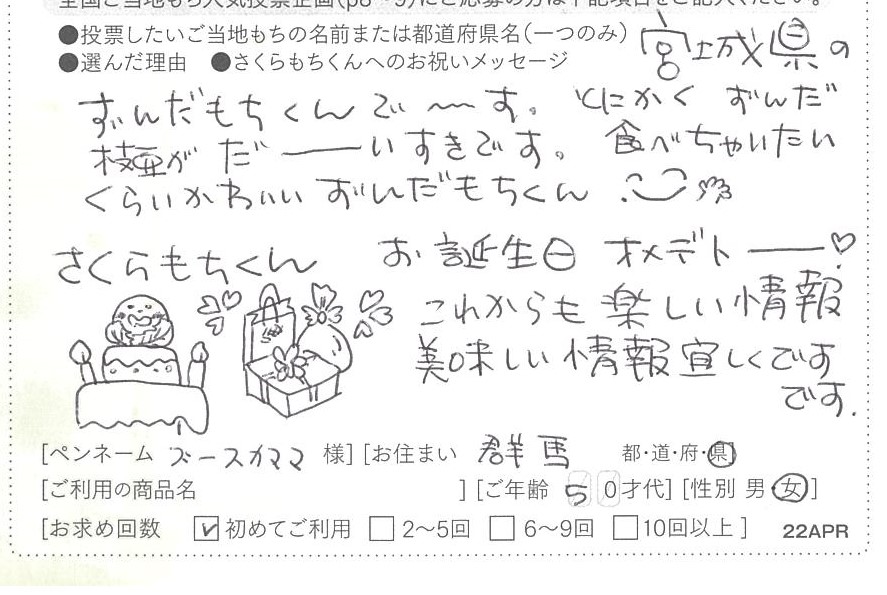 全国ご当地もち人気投票企画(p8〜9)にご応募の方は下記項目をご記入ください。
●投票したいご当地もちの名前または都道府県名(一つのみ) 宮城県の
●選んだ理由 ●さくらもちくんへのお祝いメッセージ
ずんだもちくんで〜〜す。とにかく ずんだ
枝豆が だ――いすきです。食べちゃいたい
くらいかわいい ずんだもちくん
さくらもちくん お誕生日 オメデトー――♡
これからも 楽しい情報
美味しい情報宜しくです
です.
[ペンネーム ズースカママ 様] [お住まい 群馬 都・道・府・県]
[ご利用の商品名 ] [ご年齢 50才代] [性別 男・女]
[お求め回数 ☑初めてご利用 □2〜5回 □6〜9回 □10回以上] 22APR